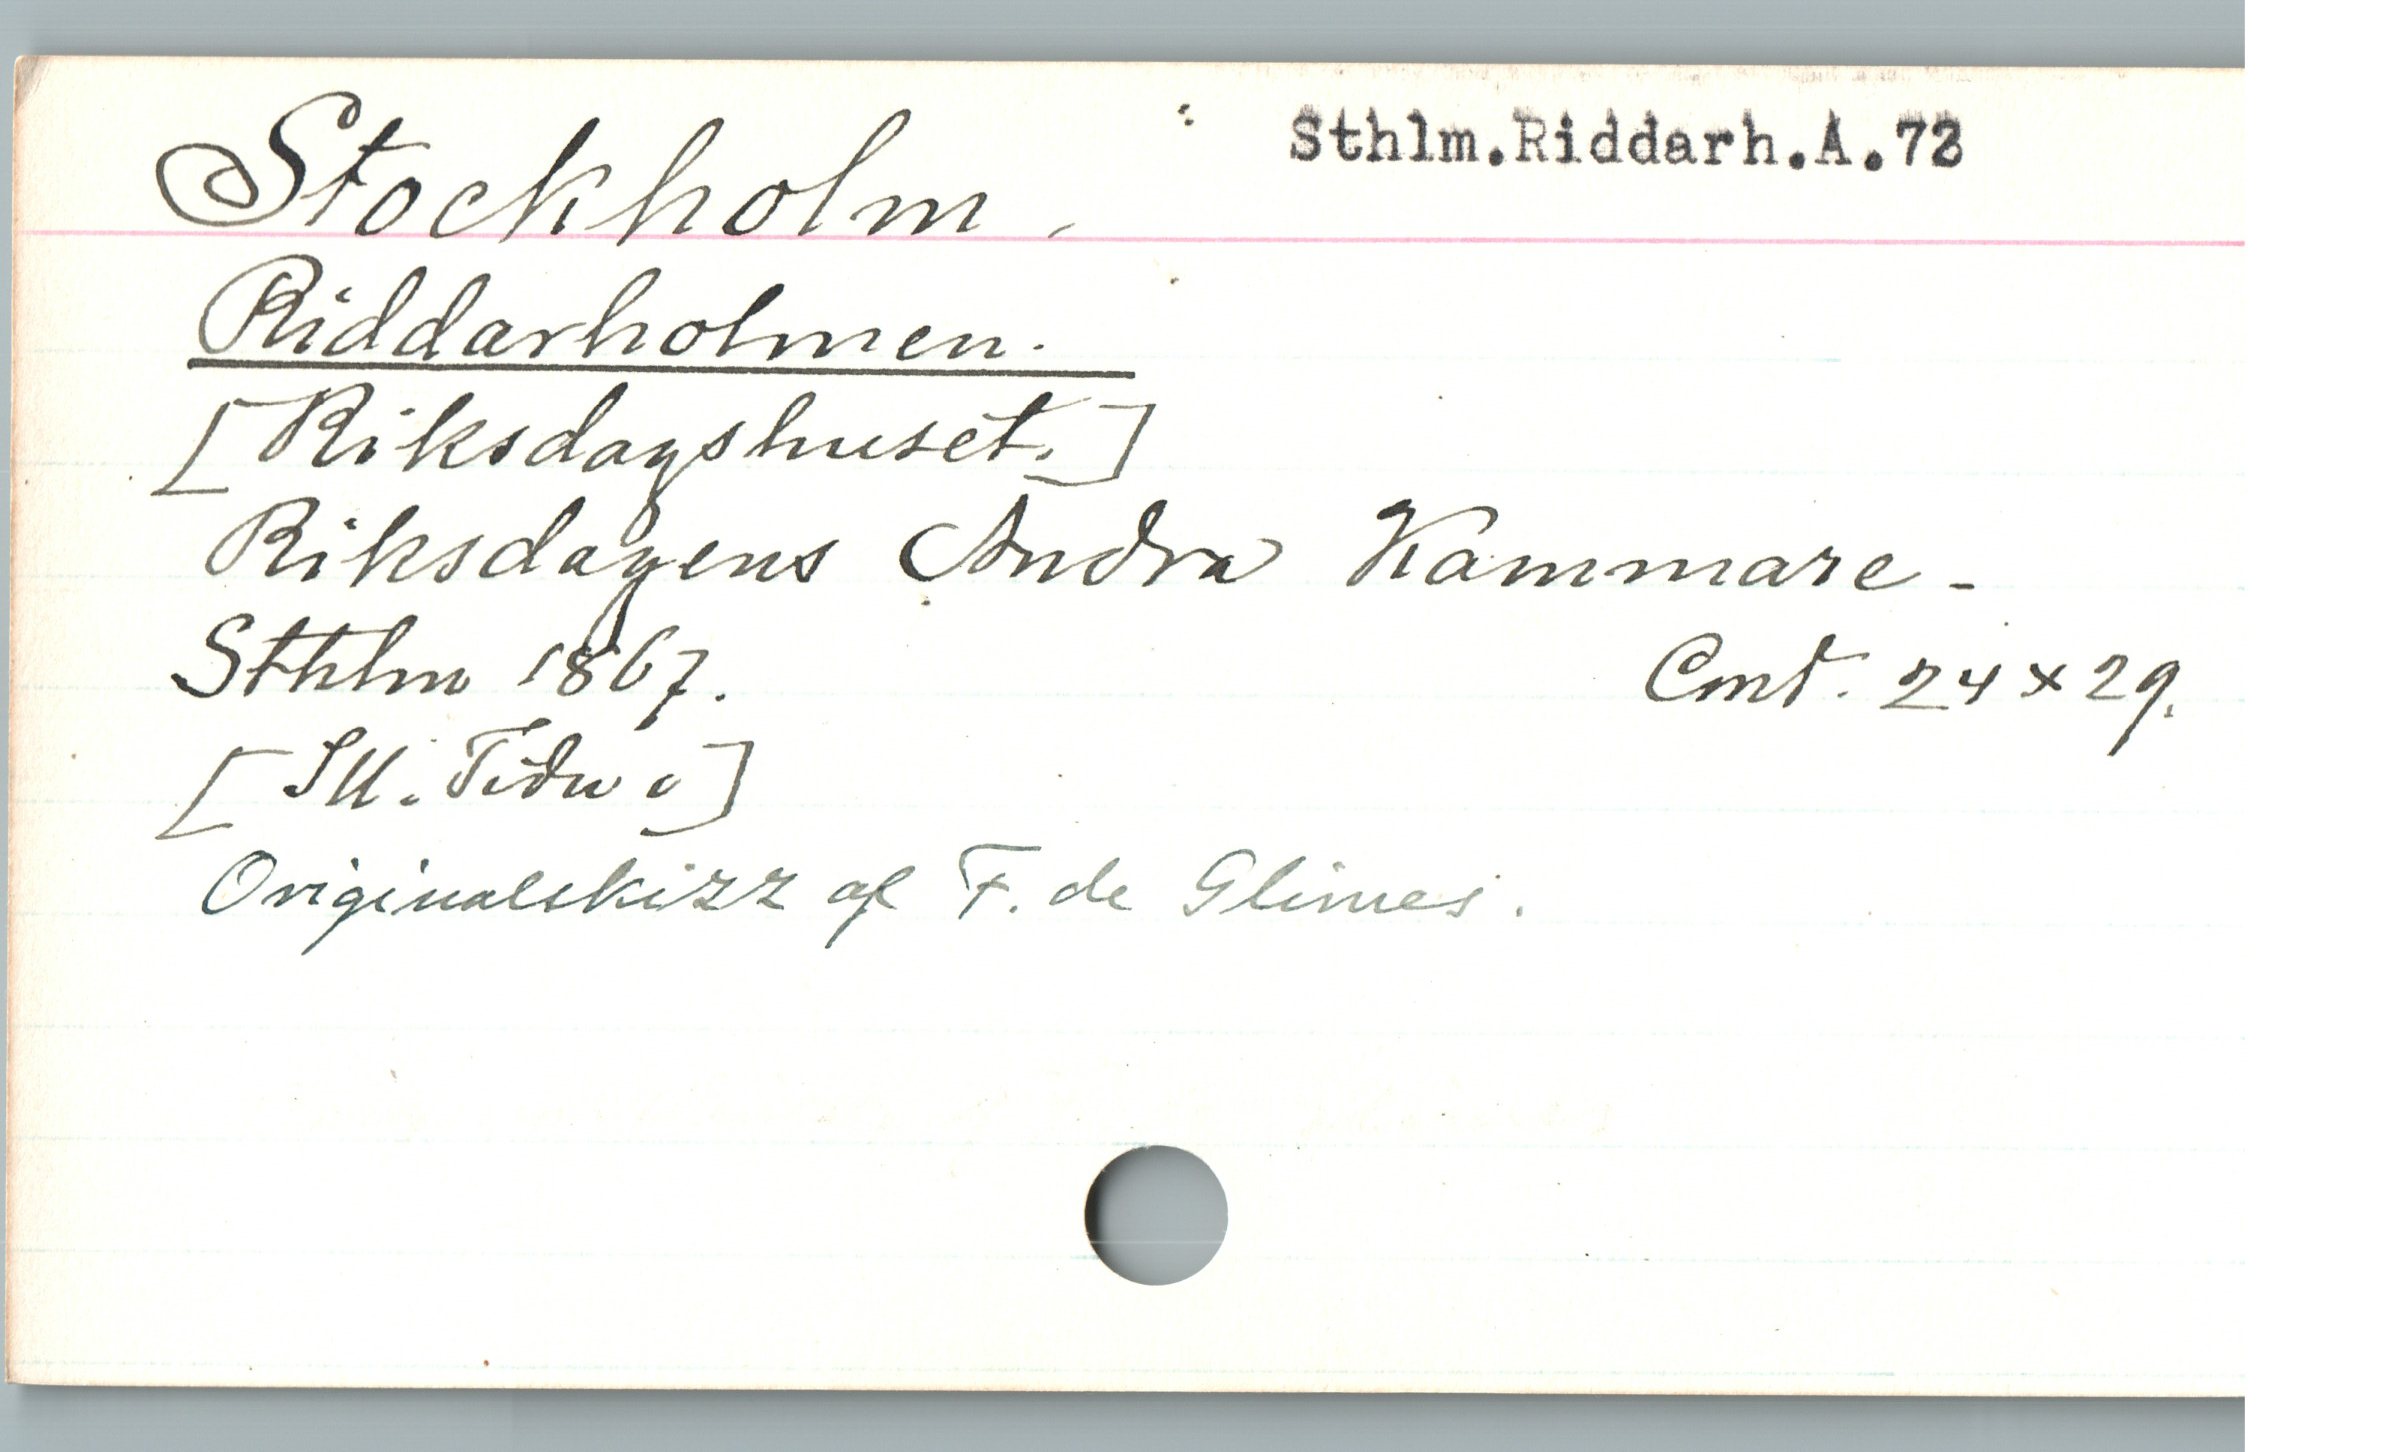 Stockholm.
Sthlm.Riddarh.A.72
Riddarholmen.
[Riksdagshuset.]
Riksdagens Andra Kammare -
Sthlm 1867.
Cmt. 24 x 29.
[Ill. Tidn.]
Originalskizz af F. de Glimes.